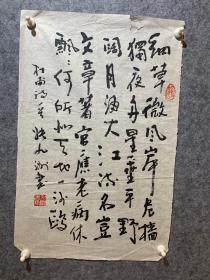 細草微風岸危檣
獨夜舟星垂平野
闊月涌大江流名豈
文章著官應老病休
飄々何所似天地一沙鷗
杜甫詩
書